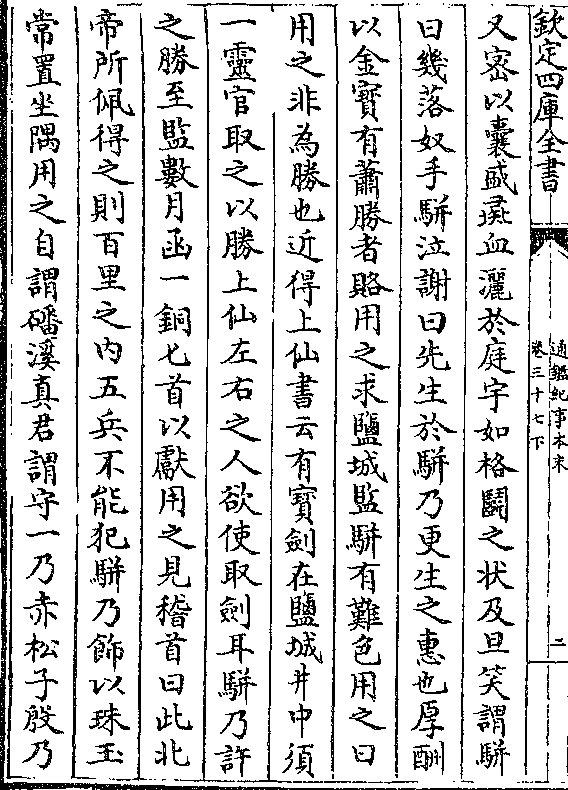 欽定四庫全書
通鑑紀事本末
卷三十七下
二
又密以囊盛彘血灑於庭宇如格鬭之狀及旦笑謂駢
曰幾落奴手駢泣謝曰先生於駢乃更生之惠也厚酬
以金寳有蕭勝者賂用之求鹽城監駢有難色用之曰
用之非為勝也近得上仙書云有寳劍在鹽城井中須
一靈官取之以勝上仙左右之人欲使取劍耳駢乃許
之勝至監數月函一銅匕首以獻用之見稽首曰此北
帝所佩得之則百里之内五兵不能犯駢乃飾以珠玉
常置坐隅用之自謂磻溪真君謂守一乃赤松子殷乃